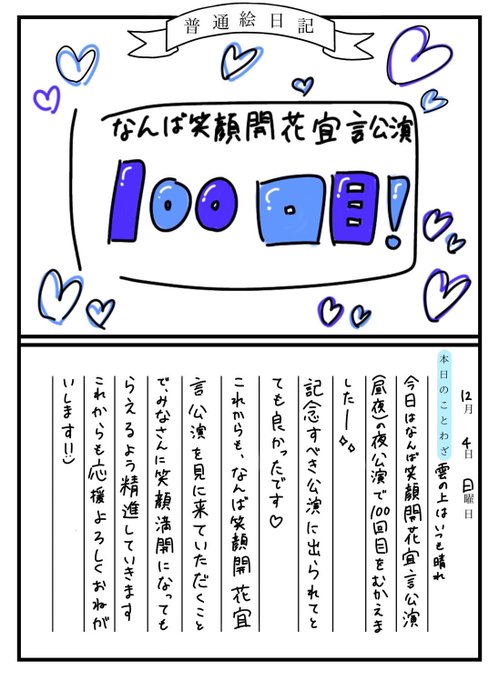 普通絵日記
なんば笑顔開花宣言公演
100回目!
12月4日日曜日
本日のことわざ 雲の上はいつも晴れ
今日はなんば笑顔開花宣言公演
(昼夜)の夜公演で100回目をむかえま
したー
記念すべき公演に出られてと
ても良かったです♡
これからも、なんば笑顔開花宣
言公演を見に来ていただくこと
で、みなさんに笑顔満開になっても
らえるよう精進していきます
これからも応援よろしくおねが
いします!!